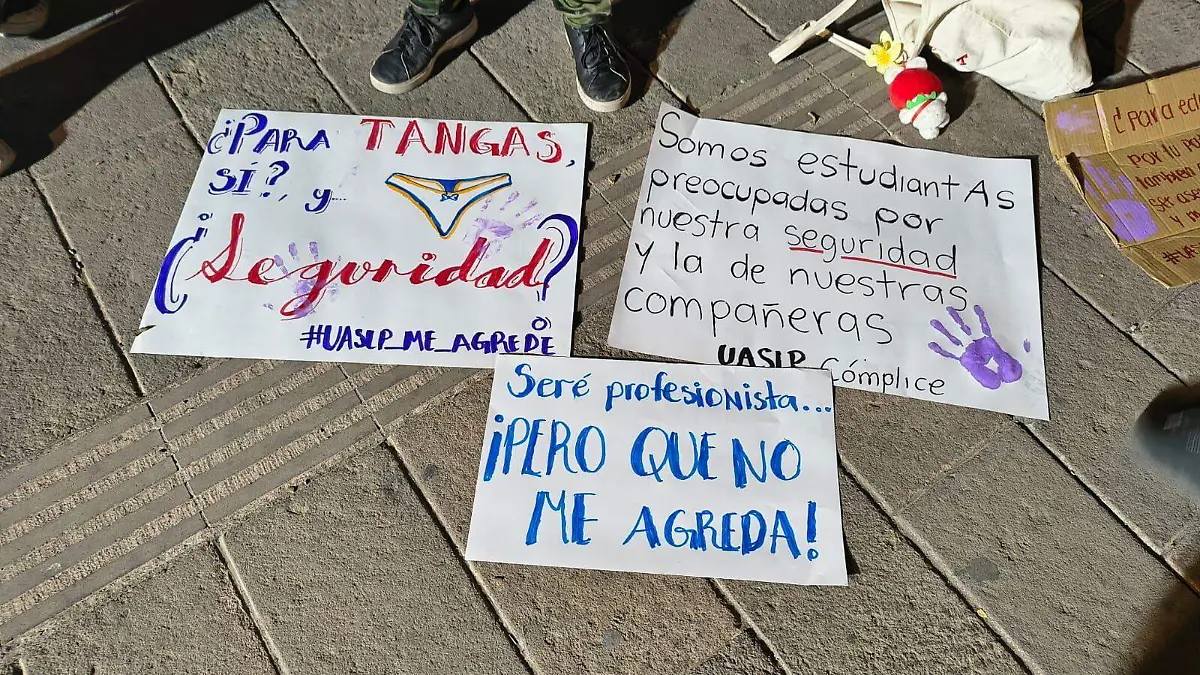 ¿PARA TANGAS,
SÍ?, y...
¿Seguridad?
#UASLP_ME_AGREDE
Somos estudiantAs
preocupadas por
nuestra seguridad
y la de nuestras
compañeras
UASLP Cómplice
Seré profesionista...
¡PERO QUE NO
ME AGREDA!
¿Para
por tu
también
y